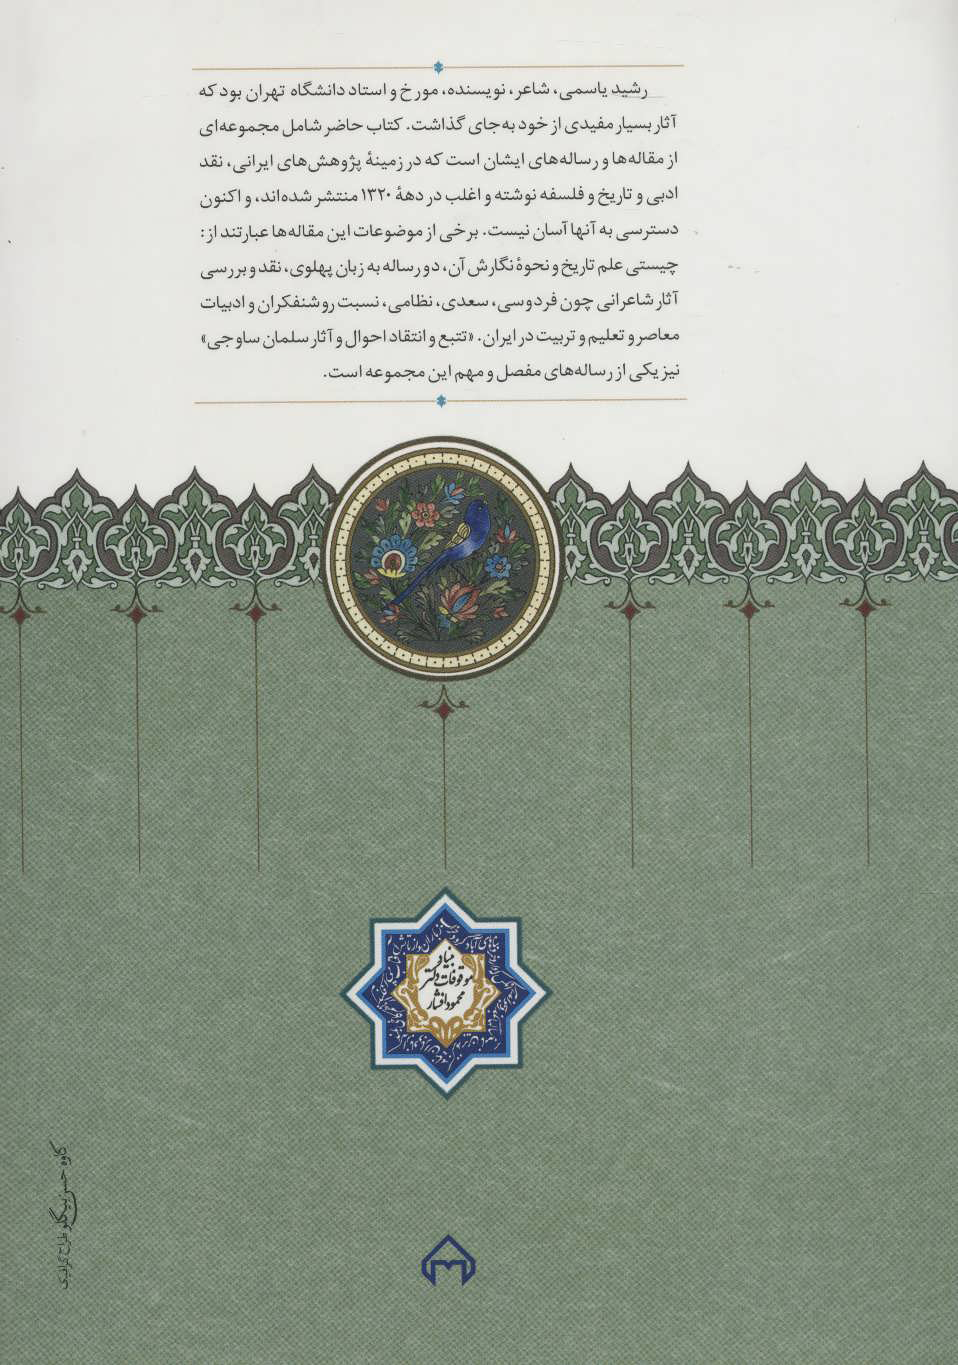 رشید یاسمی، شاعر، نویسنده، مورخ و استاد دانشگاه تهران بود که
آثار بسیار مفیدی از خود به‌جای گذاشت. کتاب حاضر شامل مجموعه‌ای
از مقاله‌ها و رساله‌های ایشان است که در زمینهٔ پژوهش‌های ایرانی، نقد
ادبی و تاریخ و فلسفه نوشته و اغلب در دههٔ ۱۳۲۰ منتشر شده‌اند، و اکنون
دسترسی به آنها آسان نیست. برخی از موضوعات این مقاله‌ها عبارتند از:
چیستی علم تاریخ و نحوهٔ نگارش آن، دو رساله به زبان پهلوی، نقد و بررسی
آثار شاعرانی چون فردوسی، سعدی، نظامی، نسبت روشنفکران و ادبیات
معاصر و تعلیم و تربیت در ایران. «تتبع و انتقاد احوال و آثار سلمان ساوجی»
نیز یکی از رساله‌های مفصل و مهم این مجموعه است.
بنیاد
موقوفات دکتر
محمود افشار
کاوه حسن بیگلو طراح گرافیک